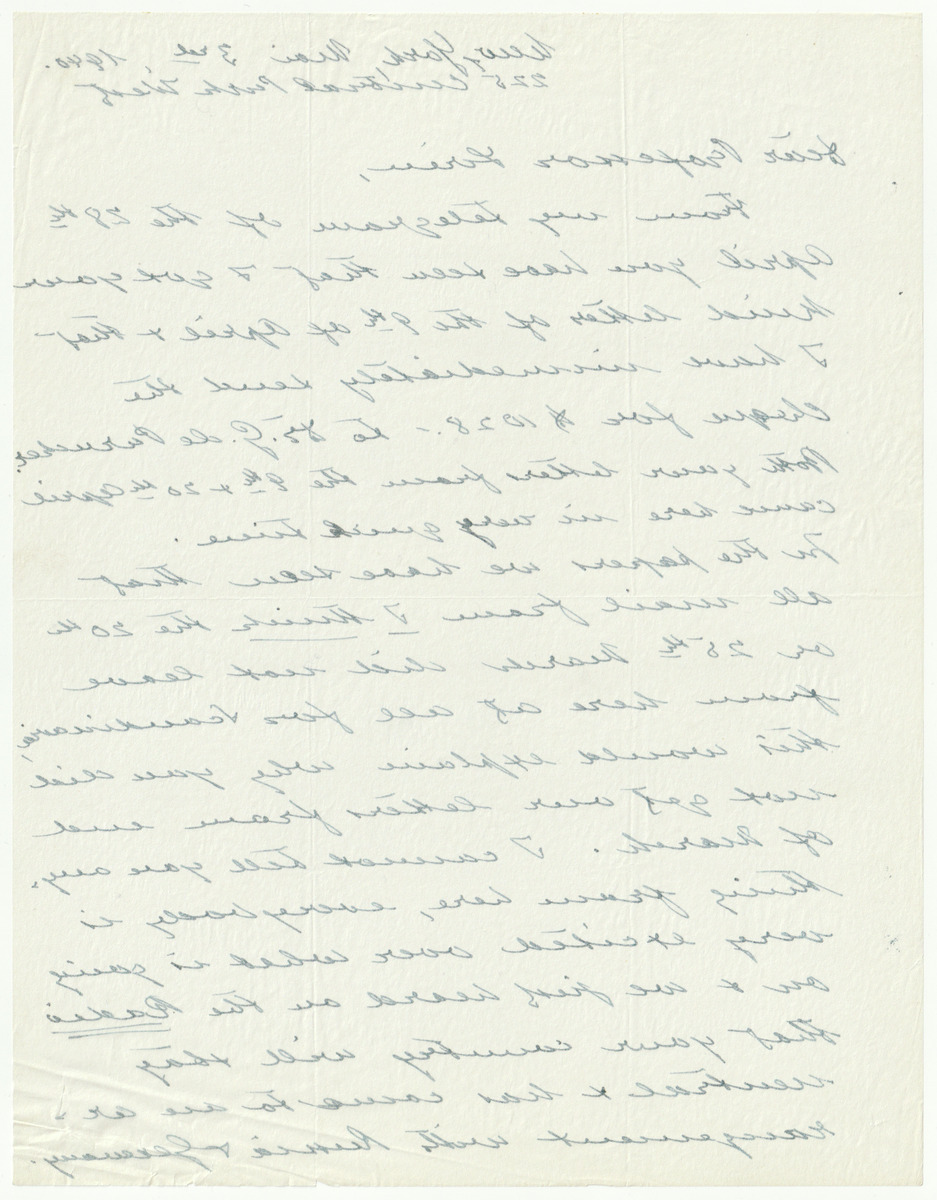 New-York, Mai 3rd, 1940.
225 Central Park West
Dear Professor Sirén,
From my telegram of the 29th
April you have seen that I got your
kind letter of the 9th of April & that
I have immediately send the
Cheque for $ 1028.- to Dr. G. de Purucker
Both your letters from the 9th & 20th April
came here in very quick time.
In the papers we have seen that
all mail from I think the 20th
or 25th March did not leave
from here at all for Scandinavia,
this would explain why you did
not get our letters from end
of March. I cannot tell you any-
thing from here, everybody is
very excited over what is going
on & we just heard on the Radio
that your country will stay
neutral & has come to an ar-
rangement with Russia & Germany.